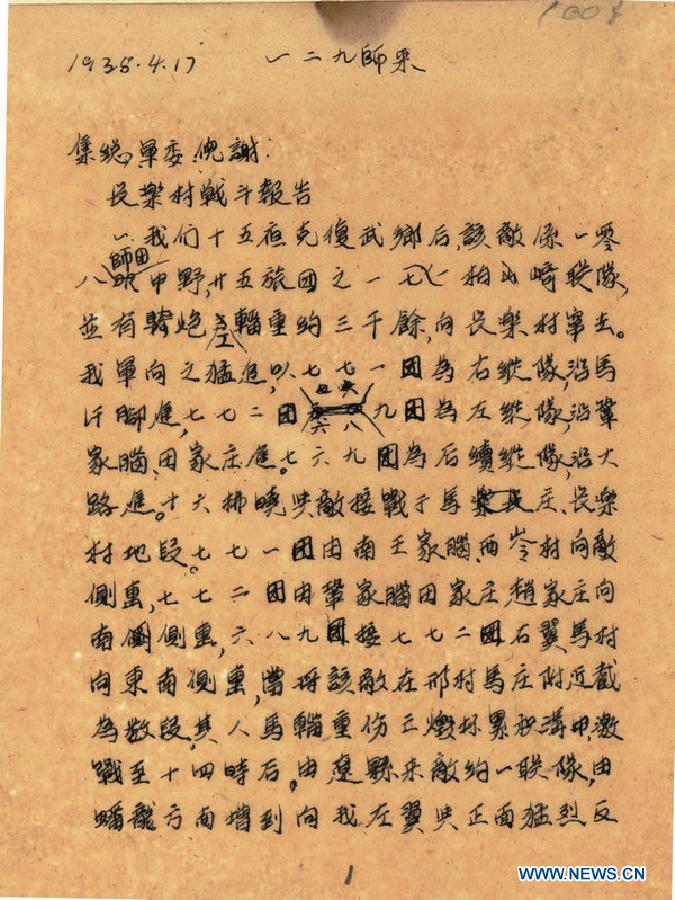 1938.4.17 一二九師来
集总、軍委、倪謝:
長樂村戰斗報告
一、我们十五夜克復武鄉后,該敵係一零
八師团 甲野,廿五旅团之一一七柏山崎联隊,
並有騎炮工輜重約三千餘,向長樂村竄去。
我軍向之猛進,以七七一团為右縱隊,沿馬
脚進,七七二团六八九团為左縱隊,沿鞏
家腦、田家庄進。七六九团為后續縱隊,沿大
路進。十六拂曉與敵接戰于馬庄、長樂
村地段。七七一团由南王家腦、西岺村向敵
側擊,七七二团由鞏家腦田家庄趙家庄向
南側擊,六八九团接七七二团右翼馬村
向東南側擊,當将該敵在邢村馬庄附近截
為数段,其人馬輜重伤亡燬坏累积溝中,激
戰至十四時后,由遼縣来敵約一联隊,由
蟠龍方面增到向我左翼與正面猛烈反
1
WWW.NEWS.CN